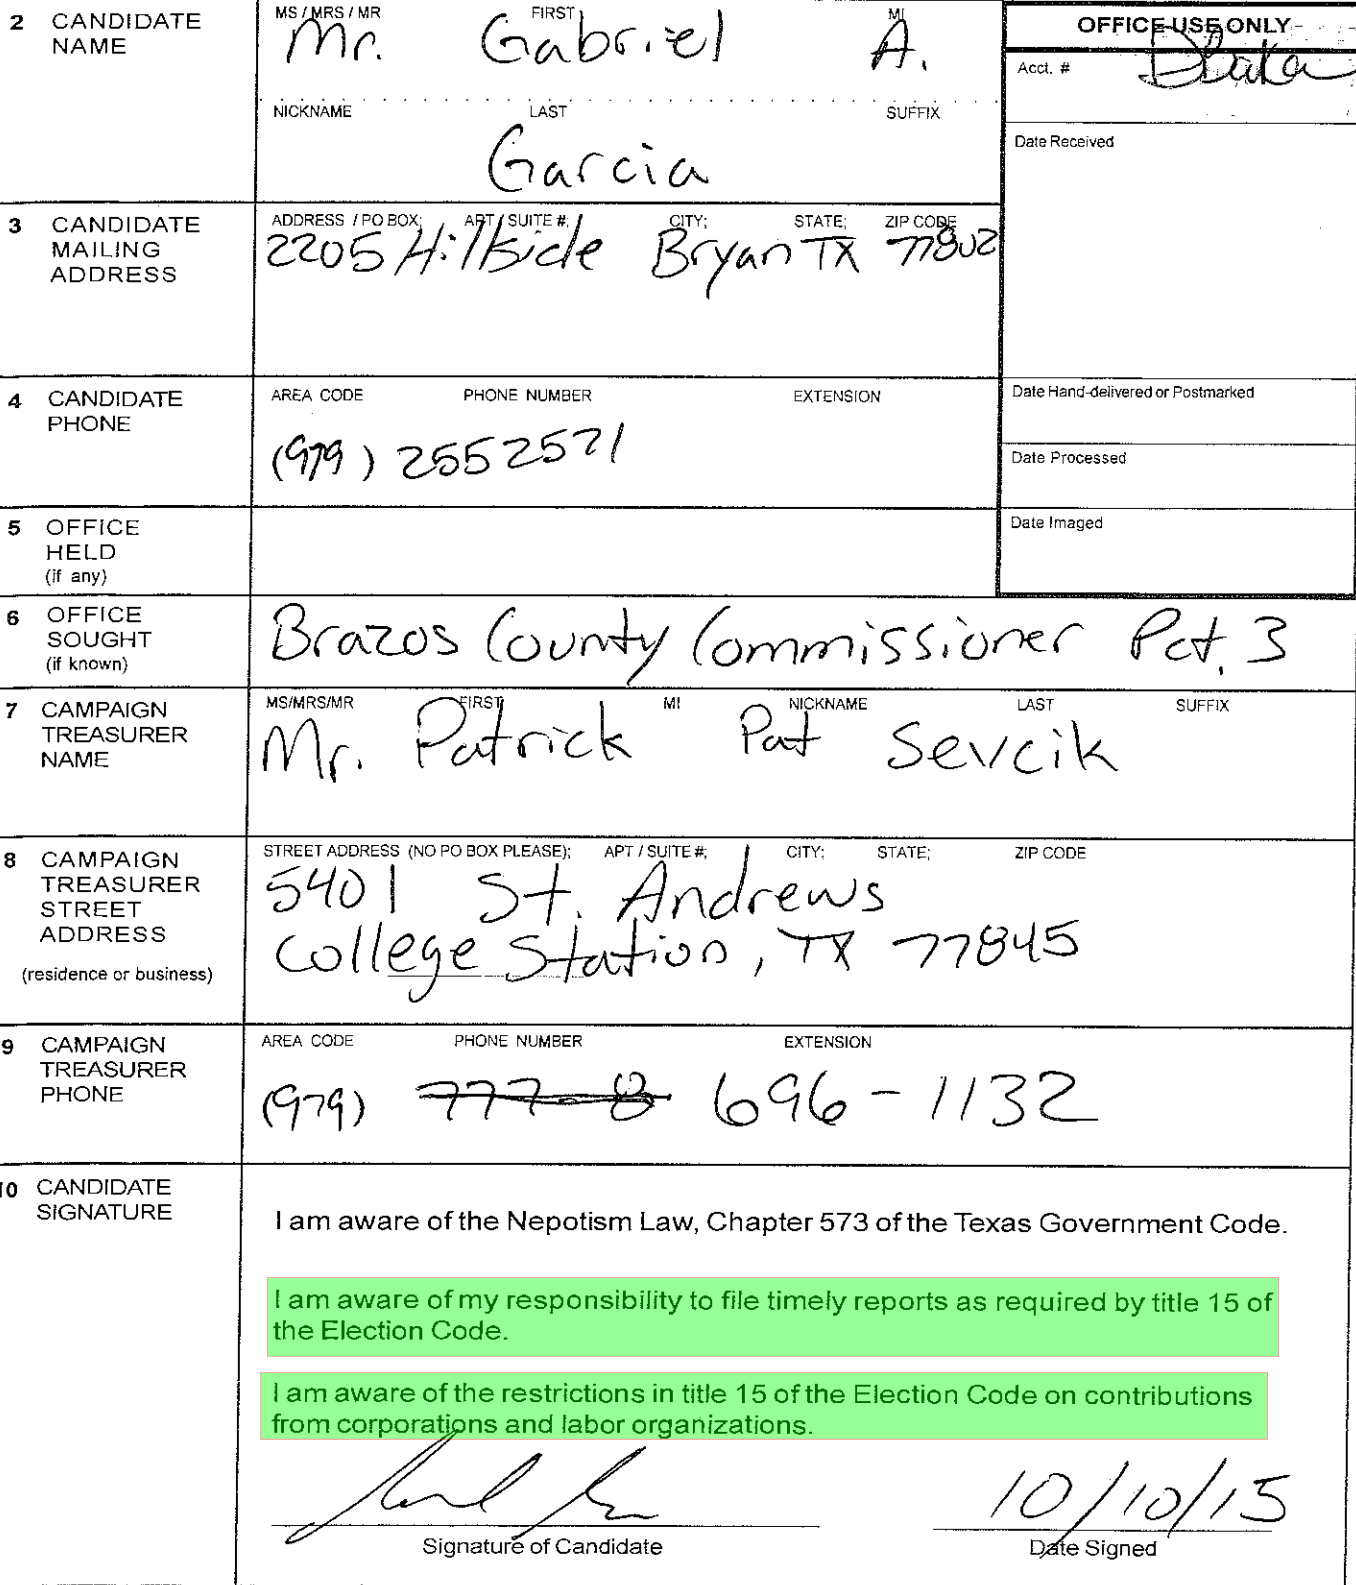 2 CANDIDATE NAME
MS / MRS / MR FIRST MI
Mr. Gabriel A.
NICKNAME LAST SUFFIX
Garcia
OFFICE USE ONLY
Acct. #
Date Received
3 CANDIDATE MAILING ADDRESS
ADDRESS / PO BOX; APT / SUITE #; CITY; STATE; ZIP CODE
2205 Hillside Bryan TX 77802
4 CANDIDATE PHONE
AREA CODE PHONE NUMBER EXTENSION
(979) 2552521
Date Hand-delivered or Postmarked
Date Processed
5 OFFICE HELD
(if any)
Date Imaged
6 OFFICE SOUGHT
(if known)
Brazos County Commissioner Pct. 3
7 CAMPAIGN TREASURER NAME
MS/MRS/MR FIRST MI NICKNAME LAST SUFFIX
Mr. Patrick Pat Sevcik
8 CAMPAIGN TREASURER STREET ADDRESS
(residence or business)
STREET ADDRESS (NO PO BOX PLEASE); APT / SUITE #; CITY; STATE; ZIP CODE
5401 St. Andrews
College Station, TX 77845
9 CAMPAIGN TREASURER PHONE
AREA CODE PHONE NUMBER EXTENSION
(979) 777-8 696-1132
10 CANDIDATE SIGNATURE
I am aware of the Nepotism Law, Chapter 573 of the Texas Government Code.
I am aware of my responsibility to file timely reports as required by title 15 of
the Election Code.
I am aware of the restrictions in title 15 of the Election Code on contributions
from corporations and labor organizations.
10/10/15
Signature of Candidate Date Signed